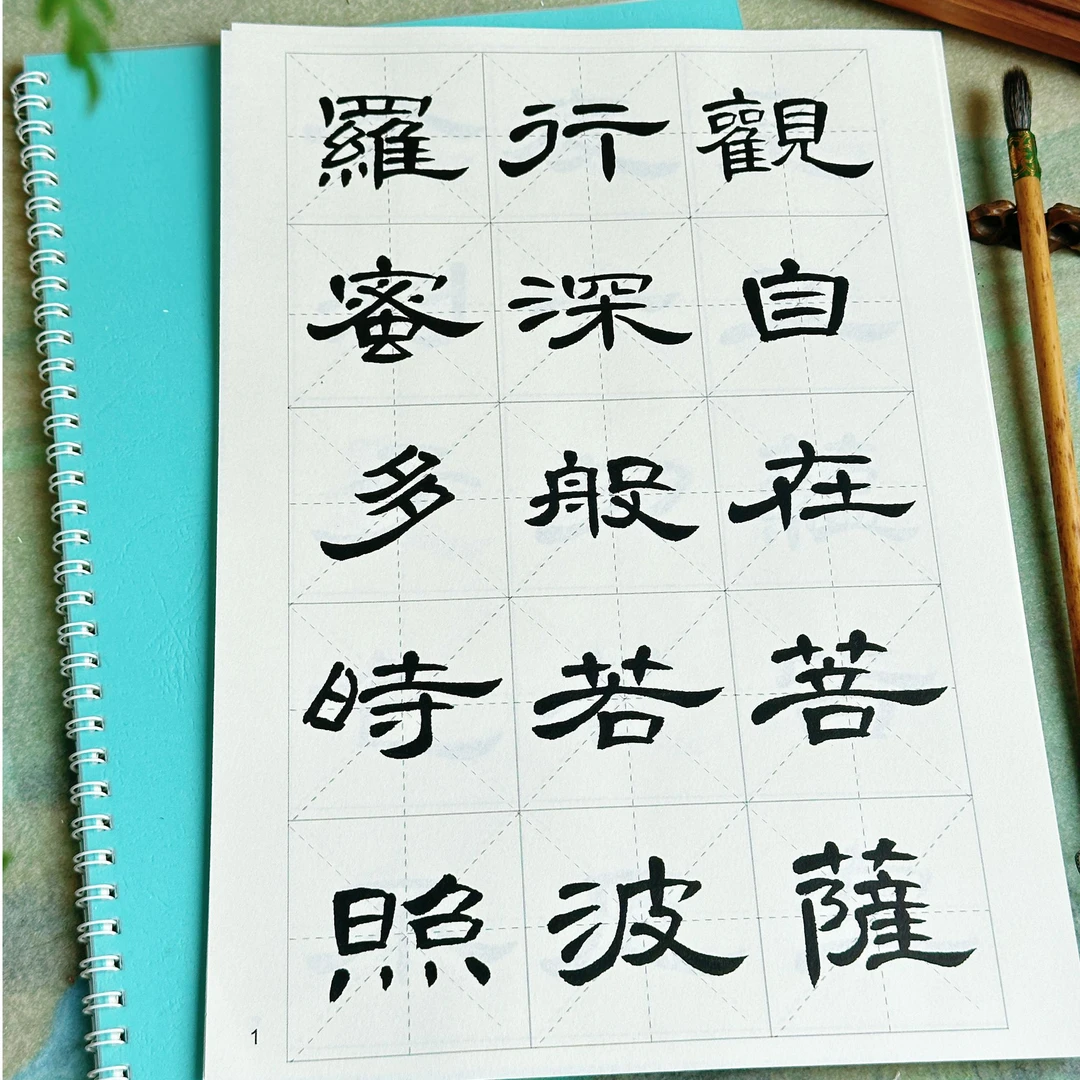 觀自在菩薩
行深般若波
羅蜜多時照
1